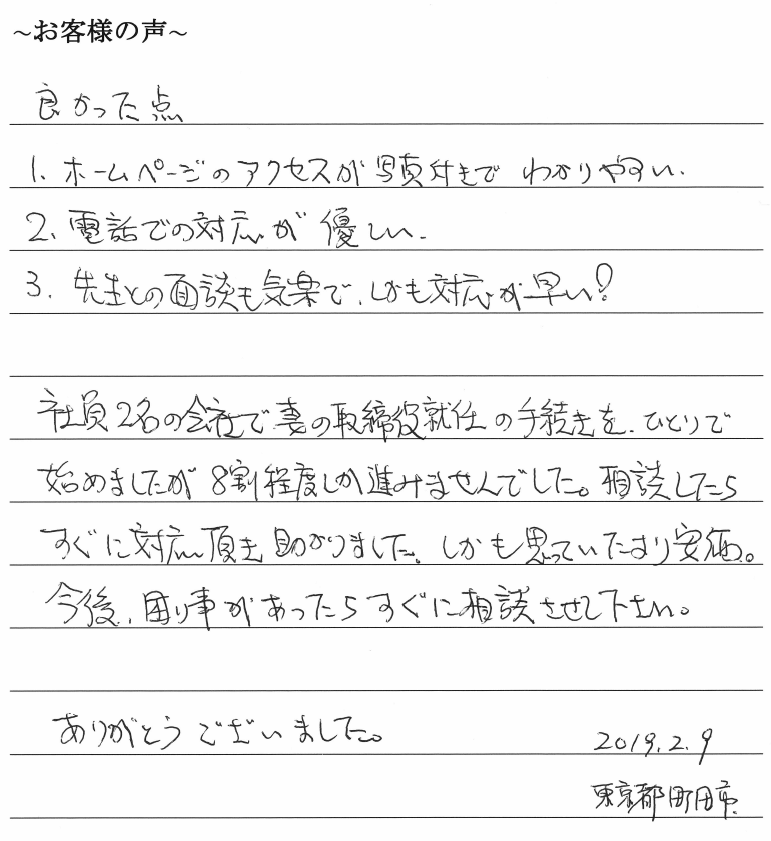 ~お客様の声~
良かった点
1. ホームページのアクセスが写真付きで わかりやすい.
2. 電話での対応が 優しい.
3. 先生との面談も気楽で、しかも対応が早い!
社員2名の会社で妻の取締役就任の手続きを、ひとりで
始めましたが 8割程度しか進みませんでした。相談したら
すぐに対応頂き 助かりました、しかも思っていたより安価。
今後、困り事があったらすぐに相談させて下さい。
ありがとうございました。
2019.2.9
東京都町田市